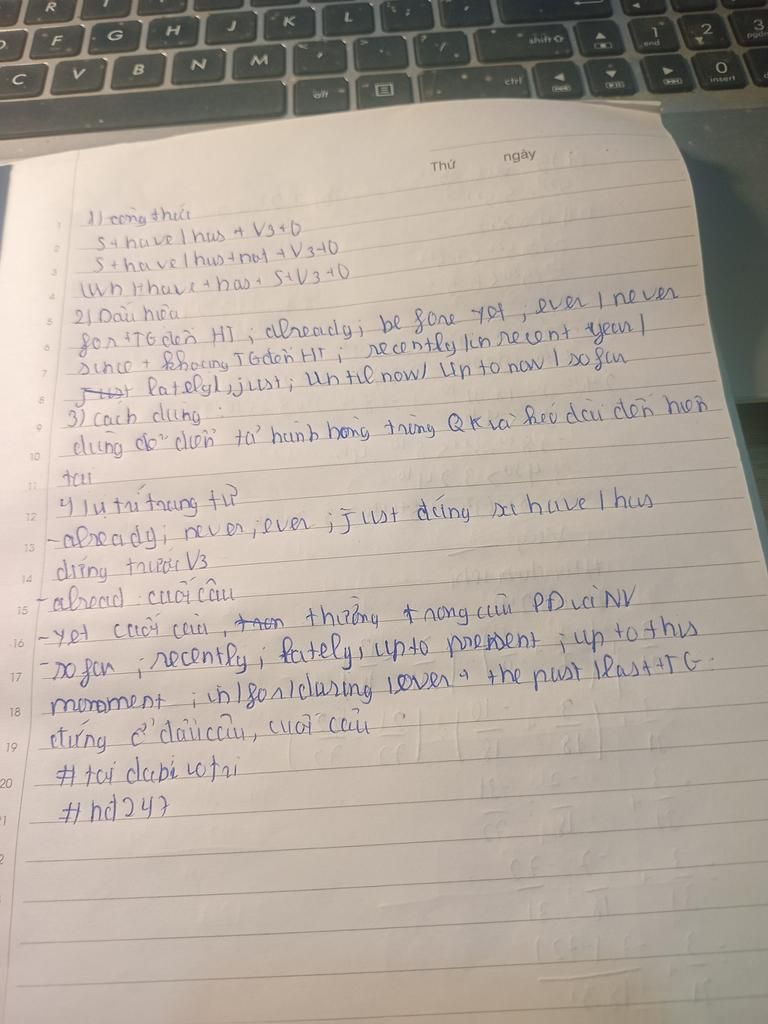 R K L
D F G H J shift 1 end 2 3 pgdn
C V B N M alt ctrl 0 insert
Thứ ngày
1 1) công thức
2 S+have/has + V3+O
3 S+have/has+not+V3+O
4 (Wh)+have+has+ S+V3+O
5 2) Dấu hiệu
6 for+TG đến HT ; already; before yet ; ever / never
7 since + khoảng TG đến HT ; recently / in recent year /
8 just lately/, just ; Until now/ Up to now / so far
9 3) cách dùng
10 dùng để diễn tả hành động trong QK và kéo dài đến hiện
11 tại
12 4) vị trí trạng từ
13 -already; never; ever ; just đứng sx have/has
14 đứng trước V3
15 -alread cuối câu
16 -yet cuối câu, thường trong câu PĐ và NV
17 -so far ; recently ; lately; up to present ; up to this
18 moment ; in/for/during /over + the past /last+TG.
19 đứng ở đầu câu, cuối câu
20 #tại
1 #hd247
2